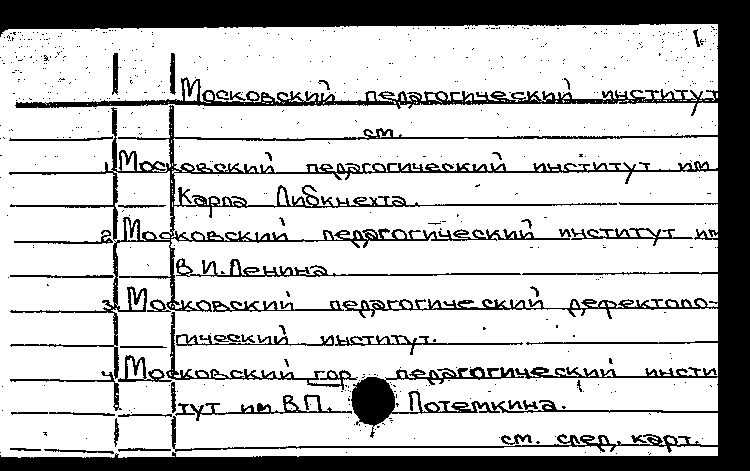 1
Московский педагогический институт
см.
1. Московский педагогический институт им.
Карла Либкнехта.
2. Московский педагогический институт им
В.И.Ленина.
3. Московский педагогический дефектоло-
гический институт.
4. Московский гор. педагогический инсти
тут им. В.П. Потемкина.
см. след. карт.